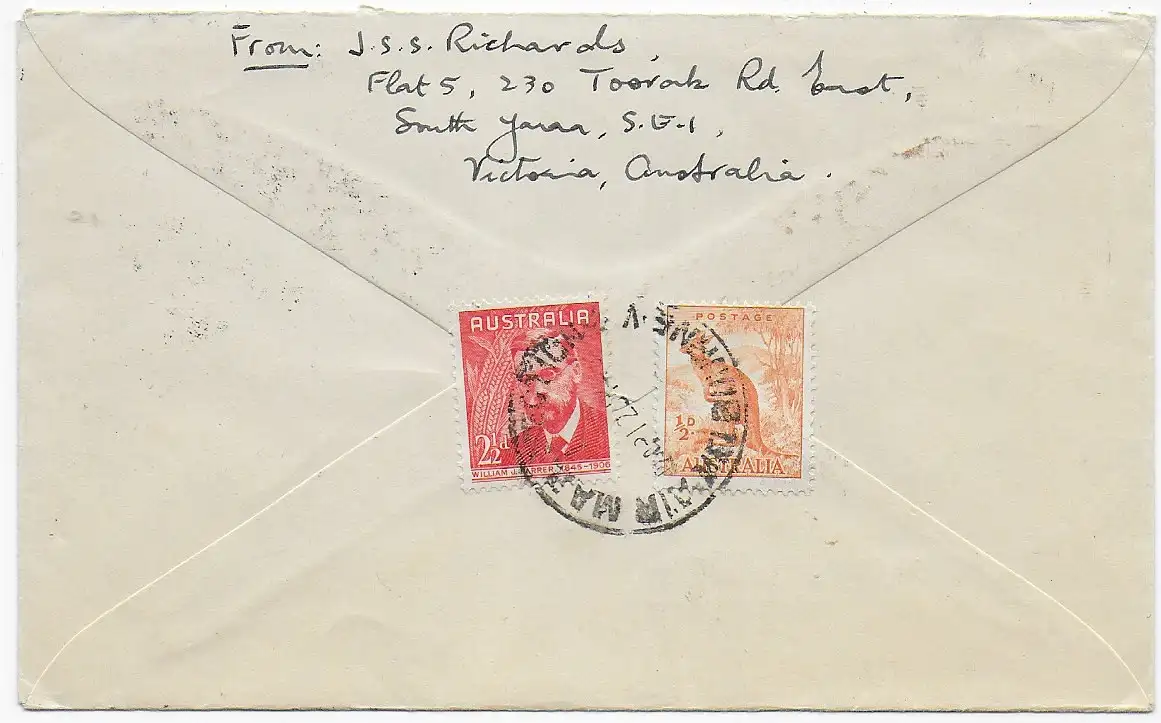 From: J.S.S. Richards,
Flat 5, 230 Toorak Rd. East,
South Yarra, S.E-1,
Victoria, Australia.
AUSTRALIA
2½d
WILLIAM J. FARRER. 1845-1906
POSTAGE
½D
AUSTRALIA
AIR MAIL